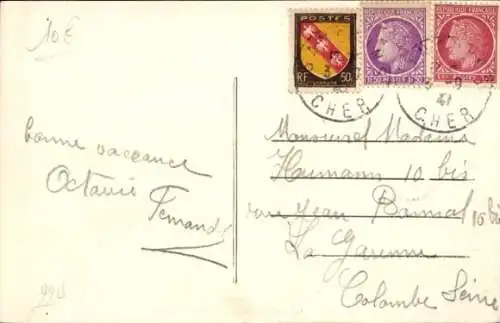 10€
POSTES
RF
50c
LORRAINE
REPUBLIQUE FRANÇAISE
POSTES
REPUBLIQUE FRANÇAISE
47
CHER
47
CHER
bonne vaccance
Octavie
Fernand
Monsieur et Madame
Haumann 10 bis
rue Jean 10 bis
La Garenne
Colombe Seine
224